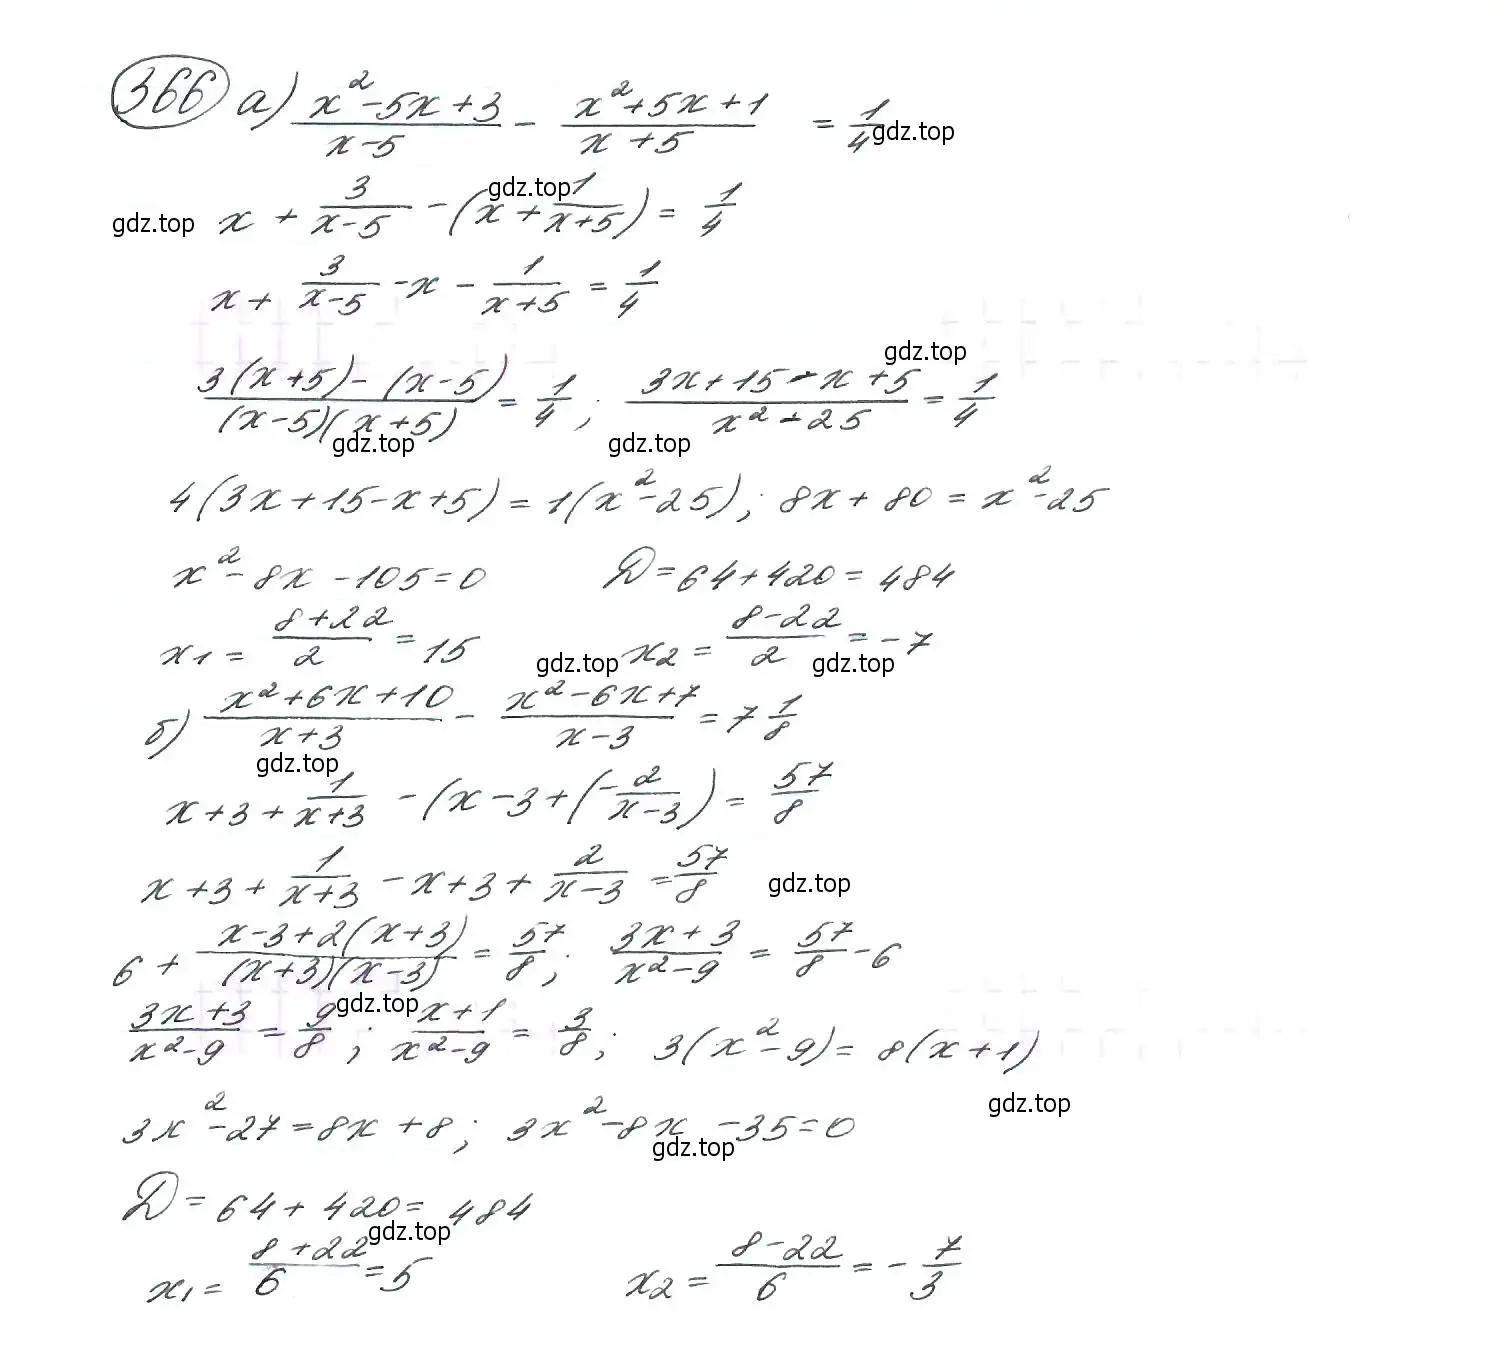 366 а) (x²-5x+3)/(x-5) - (x²+5x+1)/(x+5) = 1/4 gdz.top
gdz.top x + 3/(x-5) - (x + 1/(x+5)) = 1/4 gdz.top
x + 3/(x-5) - x - 1/(x+5) = 1/4
gdz.top
(3(x+5)-(x-5))/((x-5)(x+5)) = 1/4; (3x+15-x+5)/(x²-25) = 1/4
gdz.top gdz.top
4(3x+15-x+5) = 1(x²-25); 8x+80 = x²-25
x²-8x-105=0 D=64+420=484
x1 = (8+22)/2 = 15 gdz.top x2 = (8-22)/2 = -7 gdz.top
б) (x²+6x+10)/(x+3) - (x²-6x+7)/(x-3) = 7 1/8
gdz.top
x+3+1/(x+3) - (x-3+(-2/(x-3)) = 57/8
x+3+1/(x+3) - x+3+2/(x-3) = 57/8 gdz.top
6 + (x-3+2(x+3))/((x+3)(x-3)) = 57/8; (3x+3)/(x²-9) = 57/8 - 6
gdz.top
(3x+3)/(x²-9) = 9/8; (x+1)/(x²-9) = 3/8; 3(x²-9) = 8(x+1)
gdz.top
3x²-27=8x+8; 3x²-8x-35=0
gdz.top
D=64+420=484
gdz.top
x1 = (8+22)/6 = 5 x2 = (8-22)/6 = -7/3